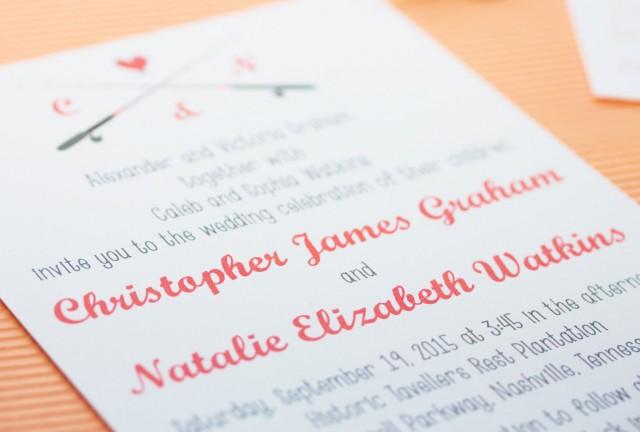 C & N
Alexander and Victoria Graham
together with
Caleb and Sophia Watkins
Invite you to the wedding celebration of their children
Christopher James Graham
and
Natalie Elizabeth Watkins
Saturday, September 19, 2015 at 3:45 in the afterno
Historic Tavellers Rest Plantation
Parkway, Nashville, Tenness
tion to follow a